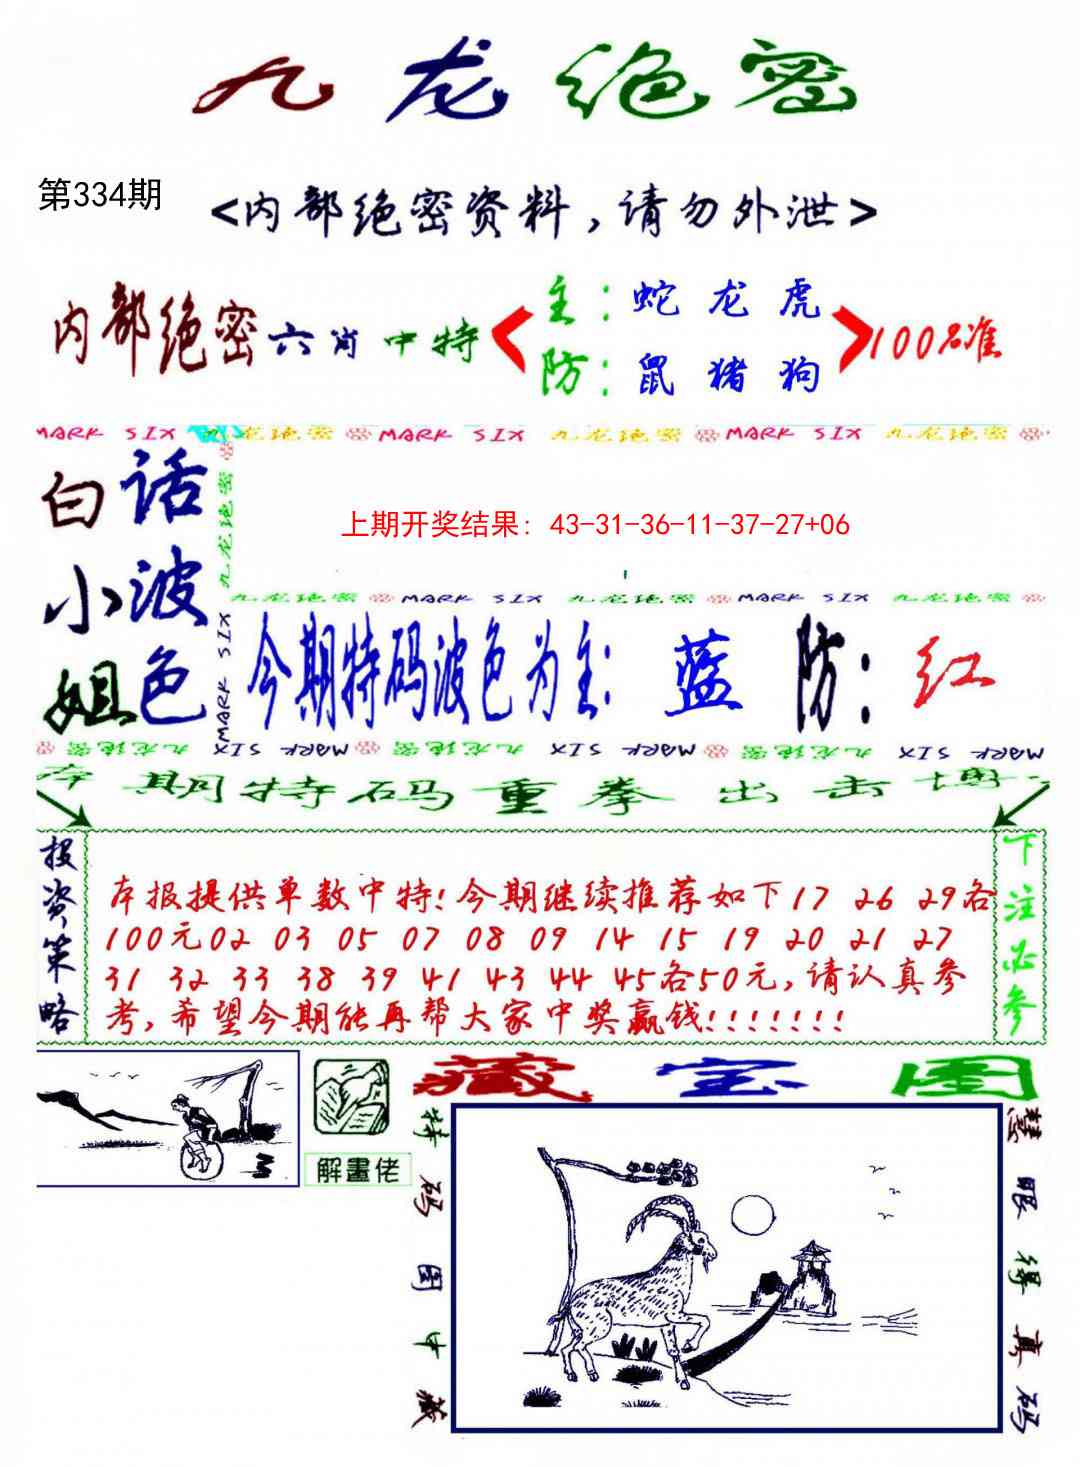 九龙绝密
第334期
<内部绝密资料,请勿外泄>
内部绝密六肖中特
主:蛇龙虎
防:鼠猪狗
100%准
MARK SIX 九龙绝密 MARK SIX 九龙绝密 MARK SIX 九龙绝密
白小姐
话波色
九龙绝密
MARK SIX
MARK SIX
上期开奖结果: 43-31-36-11-37-27+06
九龙绝密 MARK SIX 九龙绝密 MARK SIX 九龙绝密
今期特码波色为主:蓝 防:红
九龙绝密 MARK SIX 九龙绝密 MARK SIX 九龙绝密 MARK SIX
本期特码重拳出击博
投资策略
本报提供单数中特!今期继续推荐如下17 26 29各
100元02 03 05 07 08 09 14 15 19 20 21 27
31 32 33 38 39 41 43 44 45各50元,请认真参
考,希望今期能再帮大家中奖赢钱!!!!!!!
下注必参
藏宝图
解畫佬
特码图中藏
慧眼得真码